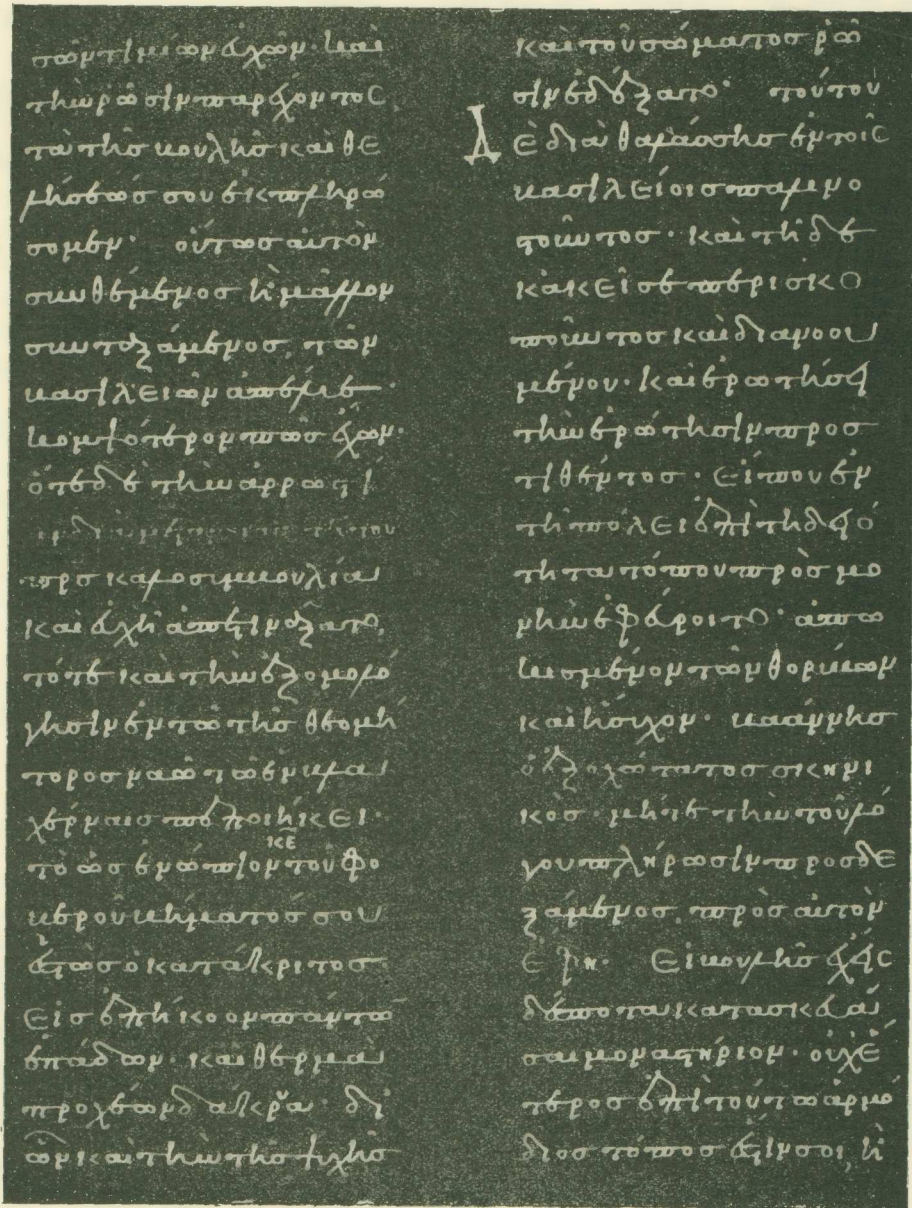 τῶν τιμίων εὐχῶν· καὶ
τὴν ῥῶσιν παρέχοντος
τὰ τῆς βουλῆς καὶ θε
λήσεώς σου ἐκπληρώ
σομεν· οὕτως αὐτὸν
συνθέμενος ἢ μᾶλλον
συνταξάμενος, τῶν
βασιλείων ἀπέλυε·
κομψότερον πως ἔχων·
ὅτε δὲ τὴν ἀρρωστί
πρς καλοσυμβουλία
καὶ εὐχὴ ἀπετινάξατο,
τότε καὶ τὴν ἐξομολό
γησιν ἐν τῶ τῆς θεομή
τορος ναῶ τῶ ἐν βλα
χέρναις πεποιήκει·
τὸ ὡς ἐνώπιον τοῦ φο
κε
βεροῦ βήματός σου
ἑστὼς ὁ κατάκριτος·
εἰς ἐπήκοον πάντων
ἐπάδων· καὶ θερμὰ
προχέων δάκρυα· δι
ὧν καὶ τὴν τῆς ψυχῆς
καὶ τοῦ σώματος ῥῶ
σιν ἐδέξατο· τούτου
Δὲ διαθαλάσσης ἐν τοῖς
βασιλείοις παλινο
τοῦντος· καὶ τῆδε
κακεῖσε περισκο
ποῦντος καὶ διανοου
μένου· καὶ ἐρωτήσει
τὴν ἐρώτησιν προσ
τιθέντος· εἴπου ἐν
τῆ πόλει ἐπιτηδειό
τητα τόπου πρὸς μο
νὴν ἐφεύροιτο· ἀπω
κισμένον τῶν θορύβων
καὶ ἥσυχον· βαάνης
ὁ ἐξοχώτατος σκηνι
κός· μήτε τὴν τοῦ λό
γου πλήρωσιν προσδε
ξάμενος, πρὸς αὐτὸν
ἔφη· Εἰ βουλῆς ἔχεις
δέσποτα κατασκευά
σαι μοναστήριον· οὐχ ἕ
τερος ἐπὶ τούτω ἁρμό
διος τόπος ἐστίν σοι, ἢ